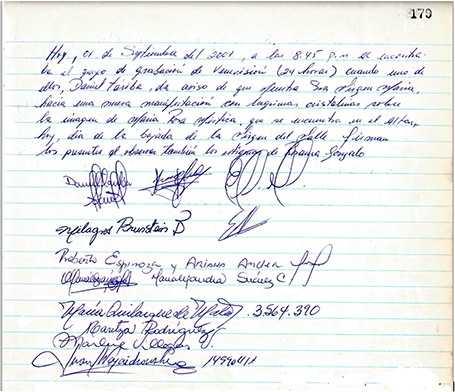 179
Hoy, 01 de Septiembre del 2001, a las 8:45 p.m se encontra-
ba el grupo de grabación de Venevisión (24 horas) cuando uno de
ellos, Daniel Tariba, da aviso de que Nuestra Sra Virgen María,
hacía una nueva manifestación con lagrimas cristalinas sobre
la imagen de María Rosa Mística, que se encuentra en el Altar,
hoy, día de la bajada de la Virgen del Valle firman
los presentes al observar también los
Daniel
Milagros Brunstein B
Roberto Espinoza y Ariana
Marialejandra Suárez C
María Quilarque de 3.564.390
Maritza Rodríguez
Marlene Villegas
Juan